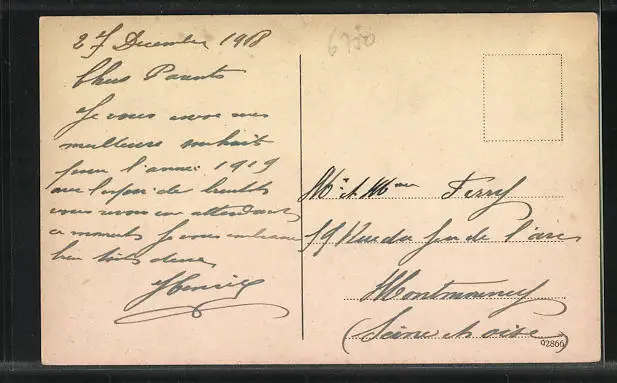 27 Decembre 1918
Chers Parents
Je vous envoie mes
meilleurs souhaits
pour l'année 1919
avec l'espoir de bientôt
vous revoir en attendant
ce moment Je vous embrasse
bien tous deux
Henri
6750
Mr et Mme Ferry
19 Rue du Jeu de l'arc
Montmorency
(Seine et Oise)
02866